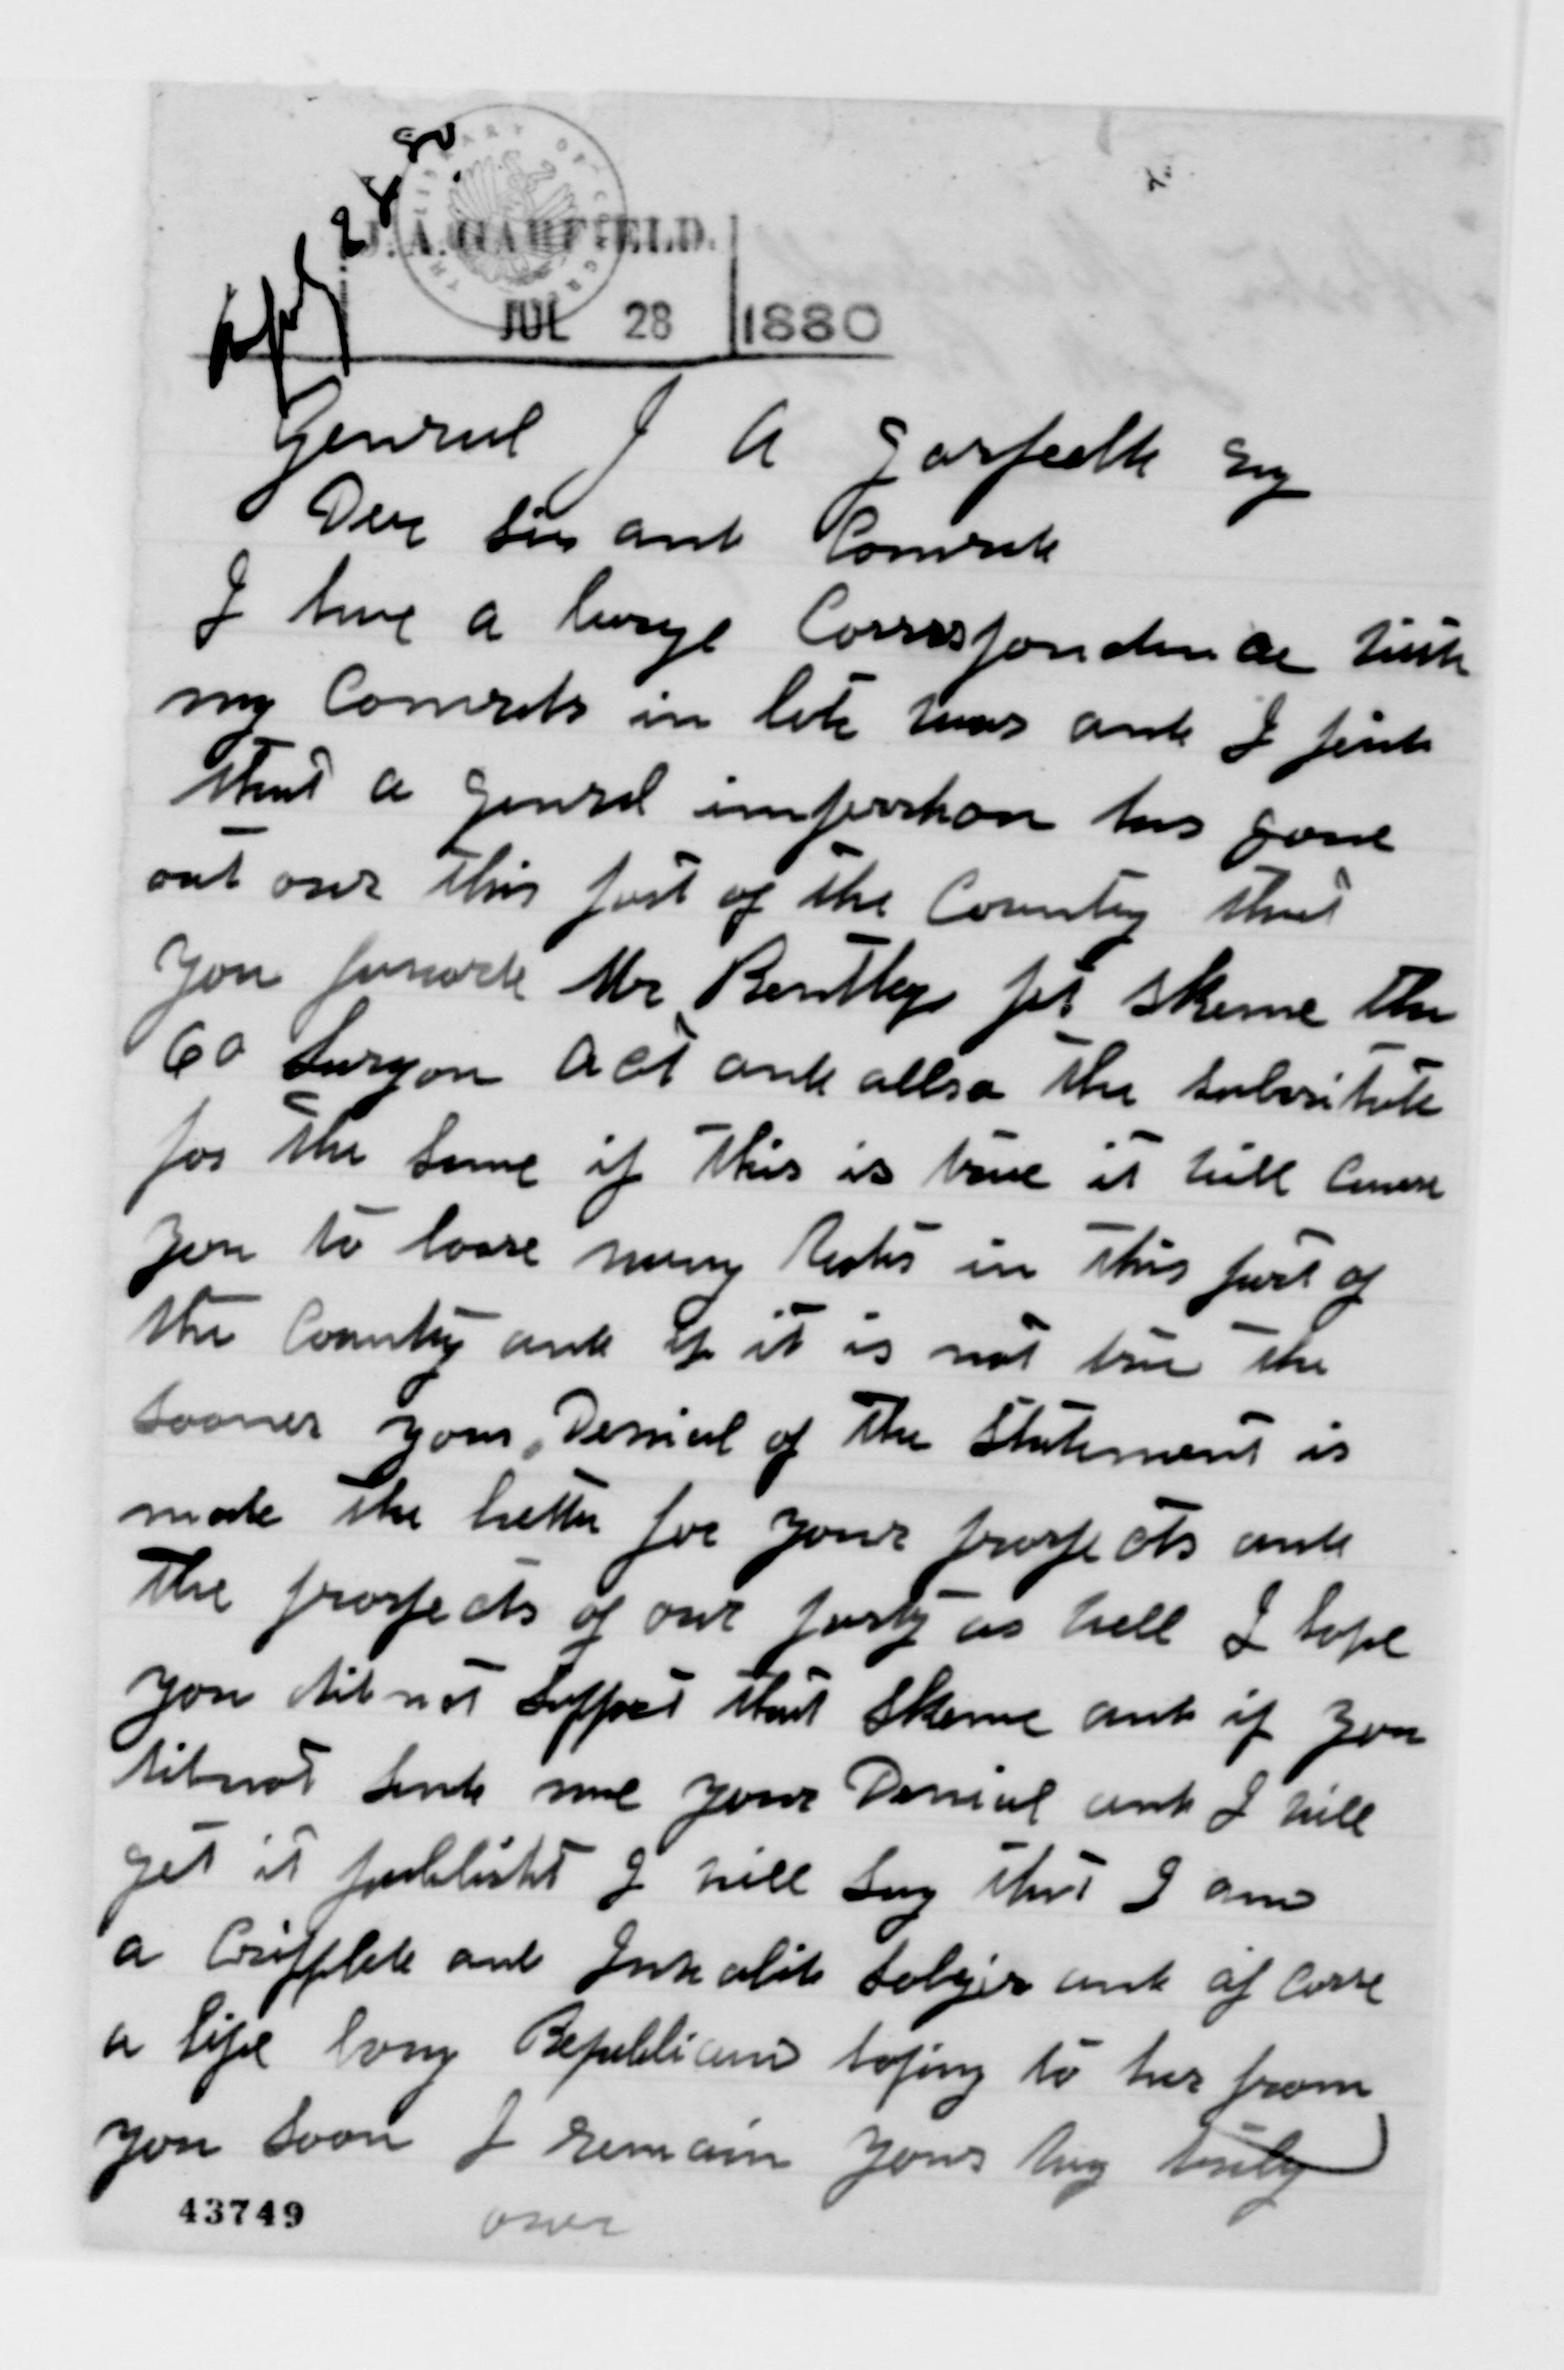 J. A. GARFIELD.
JUL 28 1880
Genral J A Garfeelk Esq
Der Sir ank Comrak
I have a large Corrrspondence with
my Comraks in lete wars ank I fink
that a genral impression has gone
out over this part of the Country that
you favork Mr Bentleys pet skeme the
60 Surgon act ank allso the substitute
for the same if this is true it will cause
you to loose many votes in this part of
the Country ank if it is not true the
sooner your Denial of the Statement is
made the better for your prospects ank
the prospects of our party as well I hope
you dit not support that skeme ank if you
dit not senk me your Denial ank I will
get it publisht I will say that I am
a Cripplek ank Invalik Soljer ank of corse
a life long Republican hoping to her from
you soon I remain yours very truly
over
43749